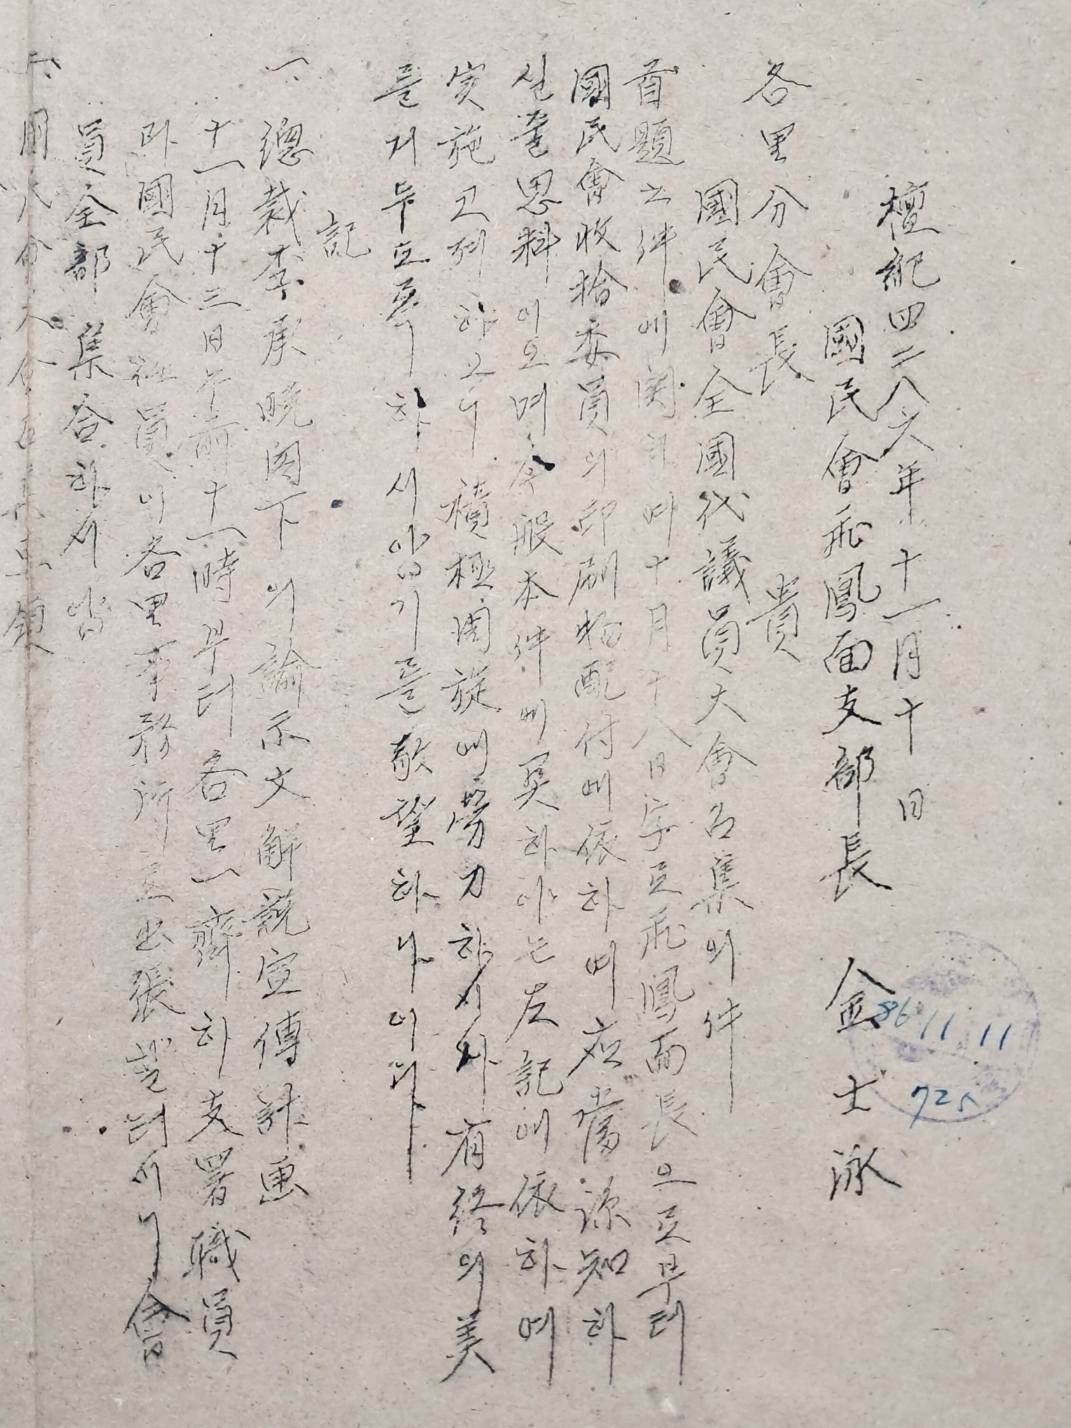 檀紀四二八六年十一月十日
國民會飛鳳面支部長 金士泳
各里分會長 貴
國民會全國代議員大會召集의件
首題之件에関하여十月十八日字로飛鳳面長으로부터
國民會收拾委員의印刷物配付에依하여応當諒知하
실줄思料이오며今般本件에関하야는左記에依하여
実施코저하오니積極周旋에勞力하시사有終의美
를거두도록하시압기를敬望하나이다
記
一、總裁李承晩閣下의諭示文解説宣傳計画
十一月十三日午前十一時부터各里一齊히支署職員
과國民會任員이各里事務所로出張할터이니會
員全部集合하서야
86.11.11
725